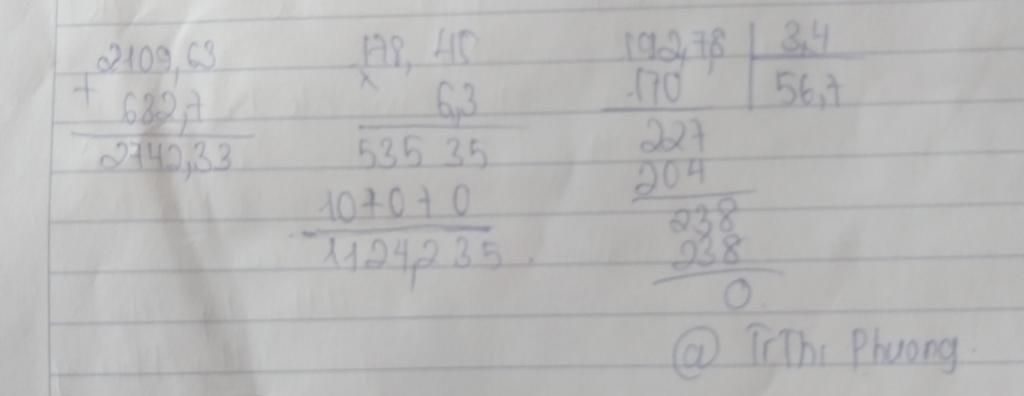 2109,63
+
632,7
2742,33
178,45
×
6,3
53535
107070
1124,235
192,78 3,4
170 56,7
227
204
238
238
0
@ TrThi Phuong.